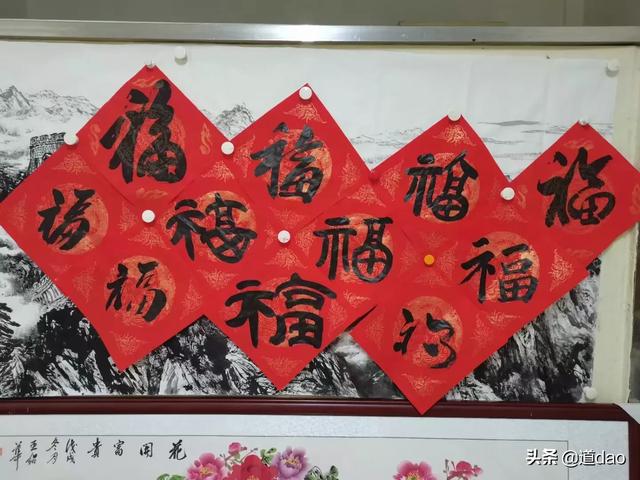 福
福
福
福
福
福
福
福
福
福
福
花開富貴
戊戌
冬月
头条 @道dao